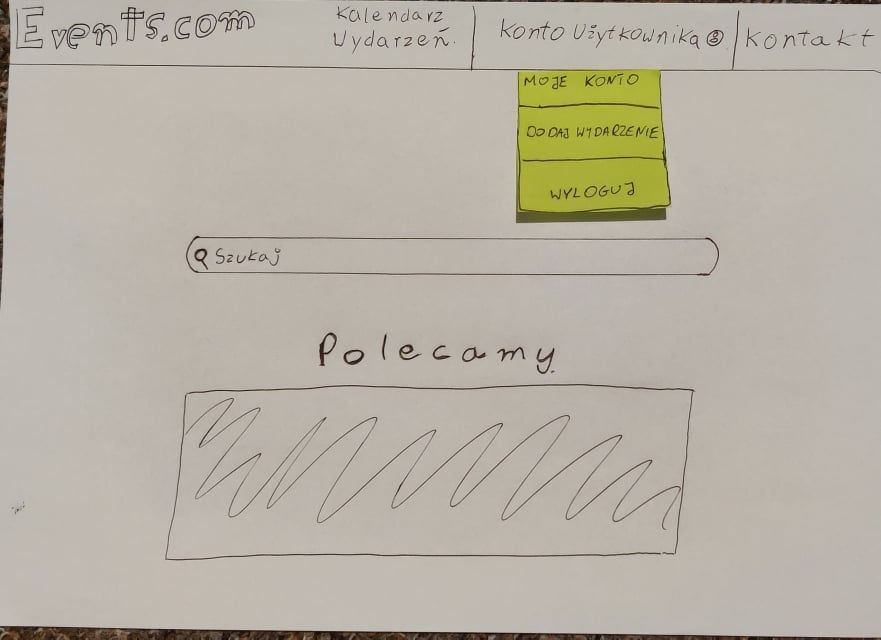 Events.com
Kalendarz
Wydarzeń.
Konto Użytkownika
Kontakt
MOJE KONTO
DODAJ WYDARZENIE
WYLOGUJ
Szukaj
Polecamy